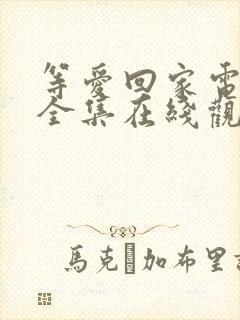 等愛回家電
全集在綫觀
馬克·加布里